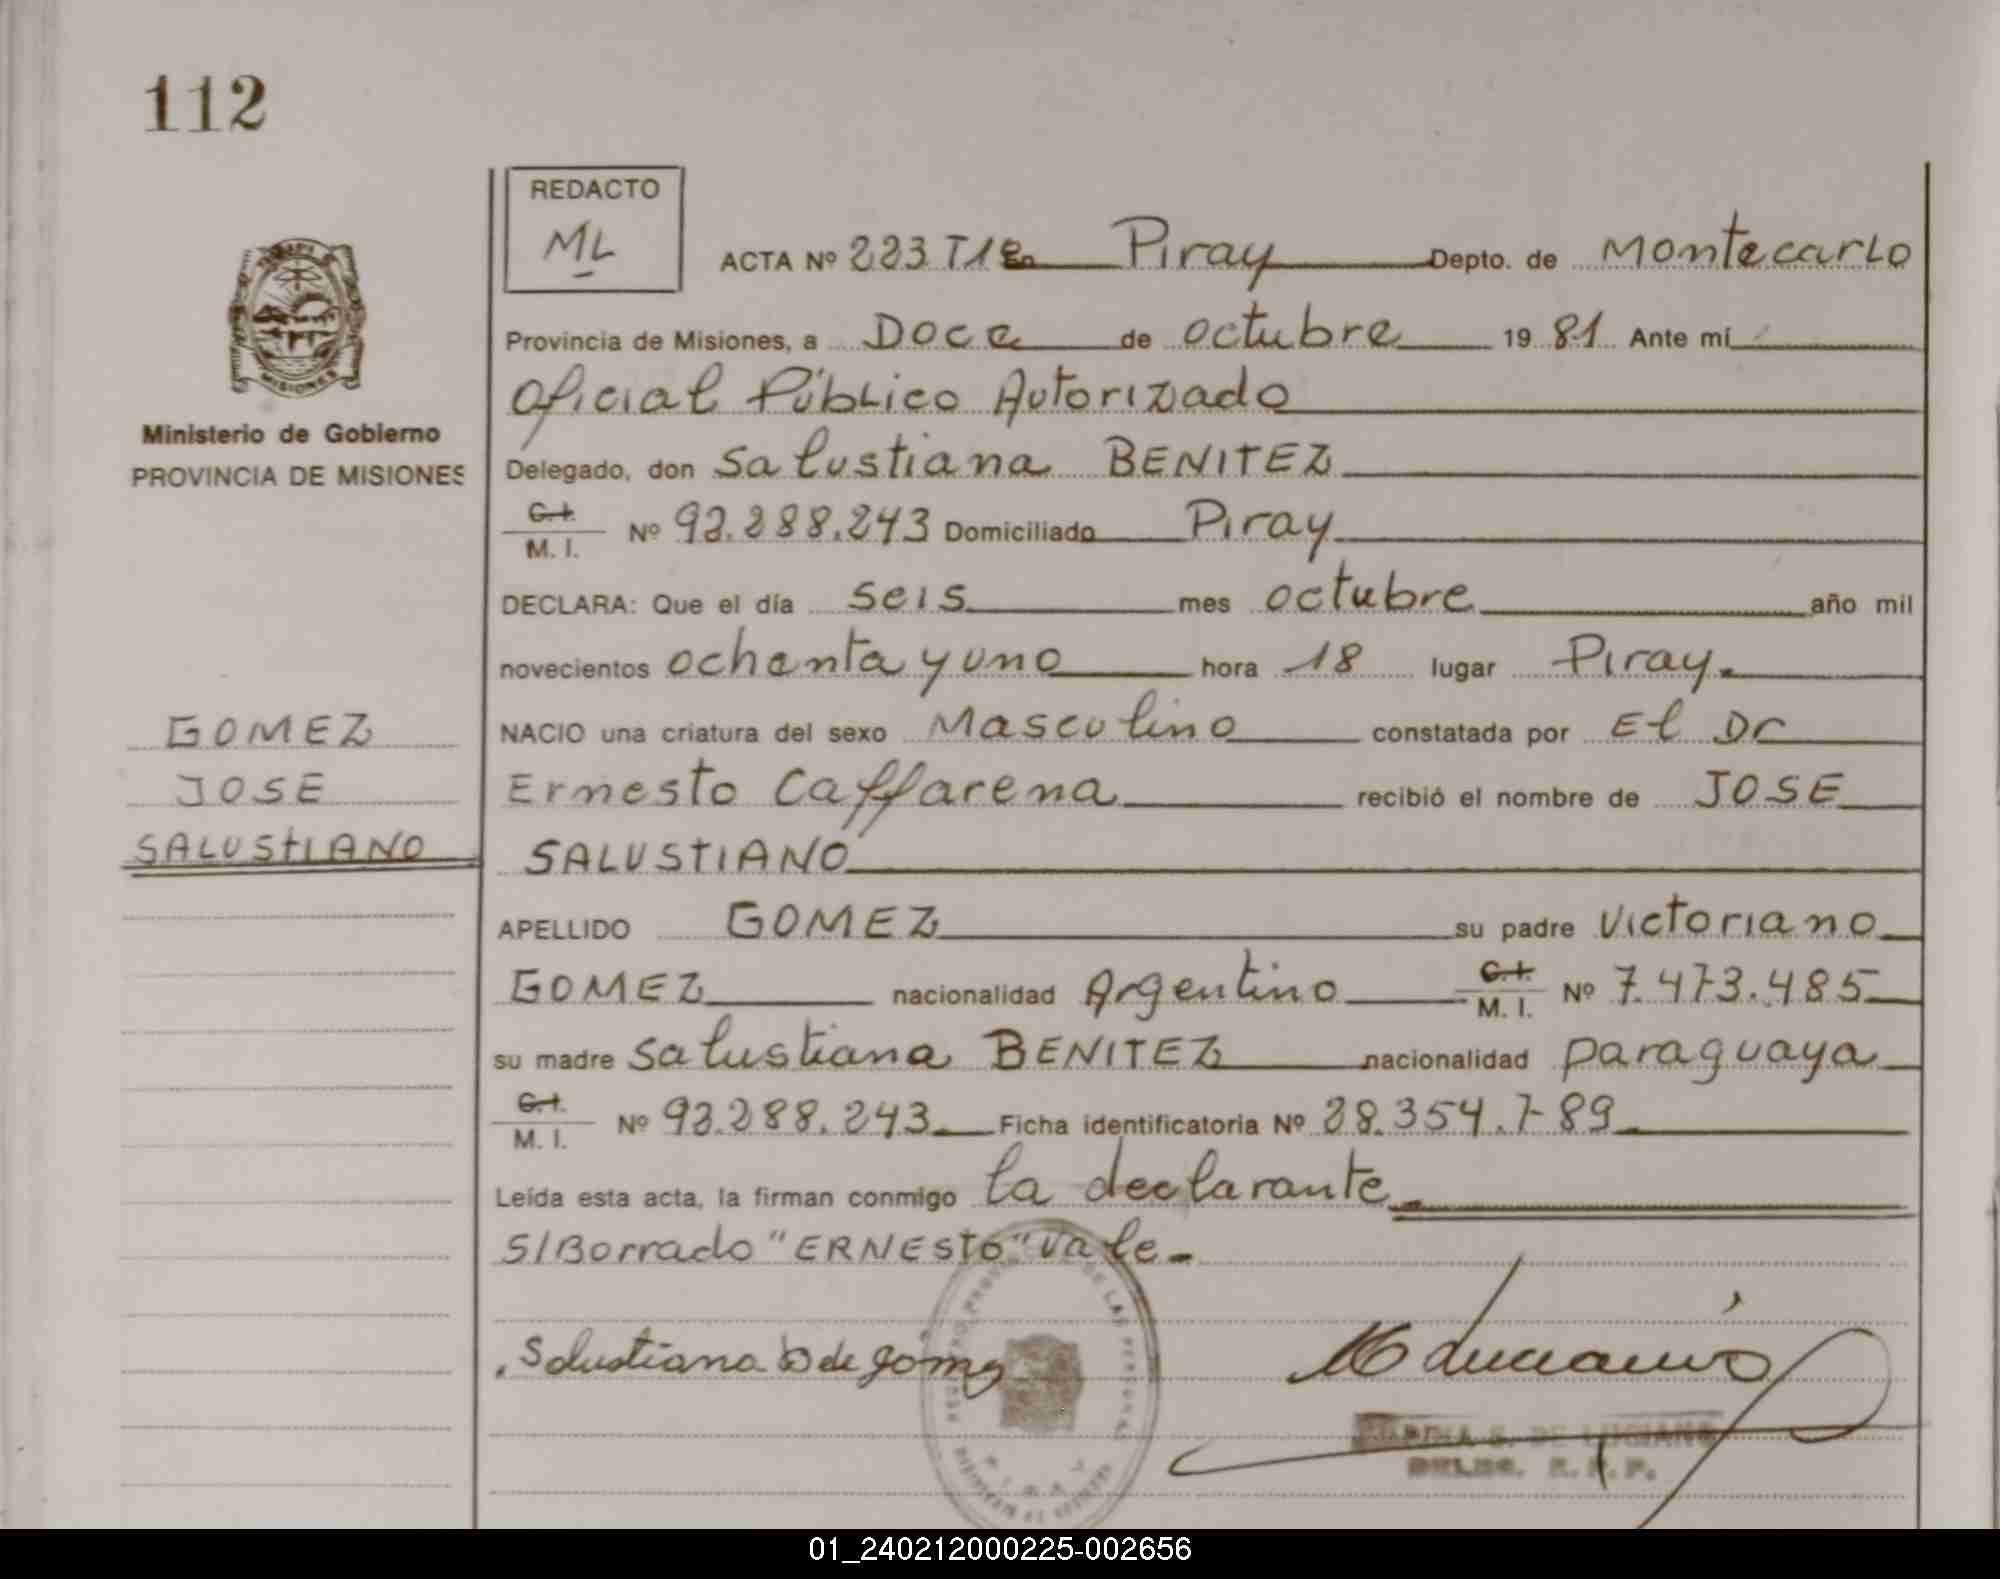 112
REDACTO
ML
ACTA Nº 223 T1º En Piray Depto. de Montecarlo
Provincia de Misiones, a Doce de octubre 19 81 Ante mí
Oficial Público Autorizado
Ministerio de Gobierno
PROVINCIA DE MISIONES
Delegado, don Salustiana BENITEZ
C.I.
M. I. Nº 92.288.243 Domiciliado Piray
DECLARA: Que el día seis mes octubre año mil
novecientos ochenta y uno hora 18 lugar Piray.
GOMEZ
JOSE
SALUSTIANO
NACIO una criatura del sexo Masculino constatada por El Dr
Ernesto Caffarena recibió el nombre de JOSE
SALUSTIANO
APELLIDO GOMEZ su padre Victoriano
GOMEZ nacionalidad Argentino C.I.
M. I. Nº 7.473.485
su madre Salustiana BENITEZ nacionalidad paraguaya
C.I.
M. I. Nº 92.288.243 Ficha identificatoria Nº 28.354.789
Leída esta acta, la firman conmigo la declarante
S/Borrado "ERNESTO" Vale-
Salustiana B de gomez
S. DE LUCIANO
01_240212000225-002656